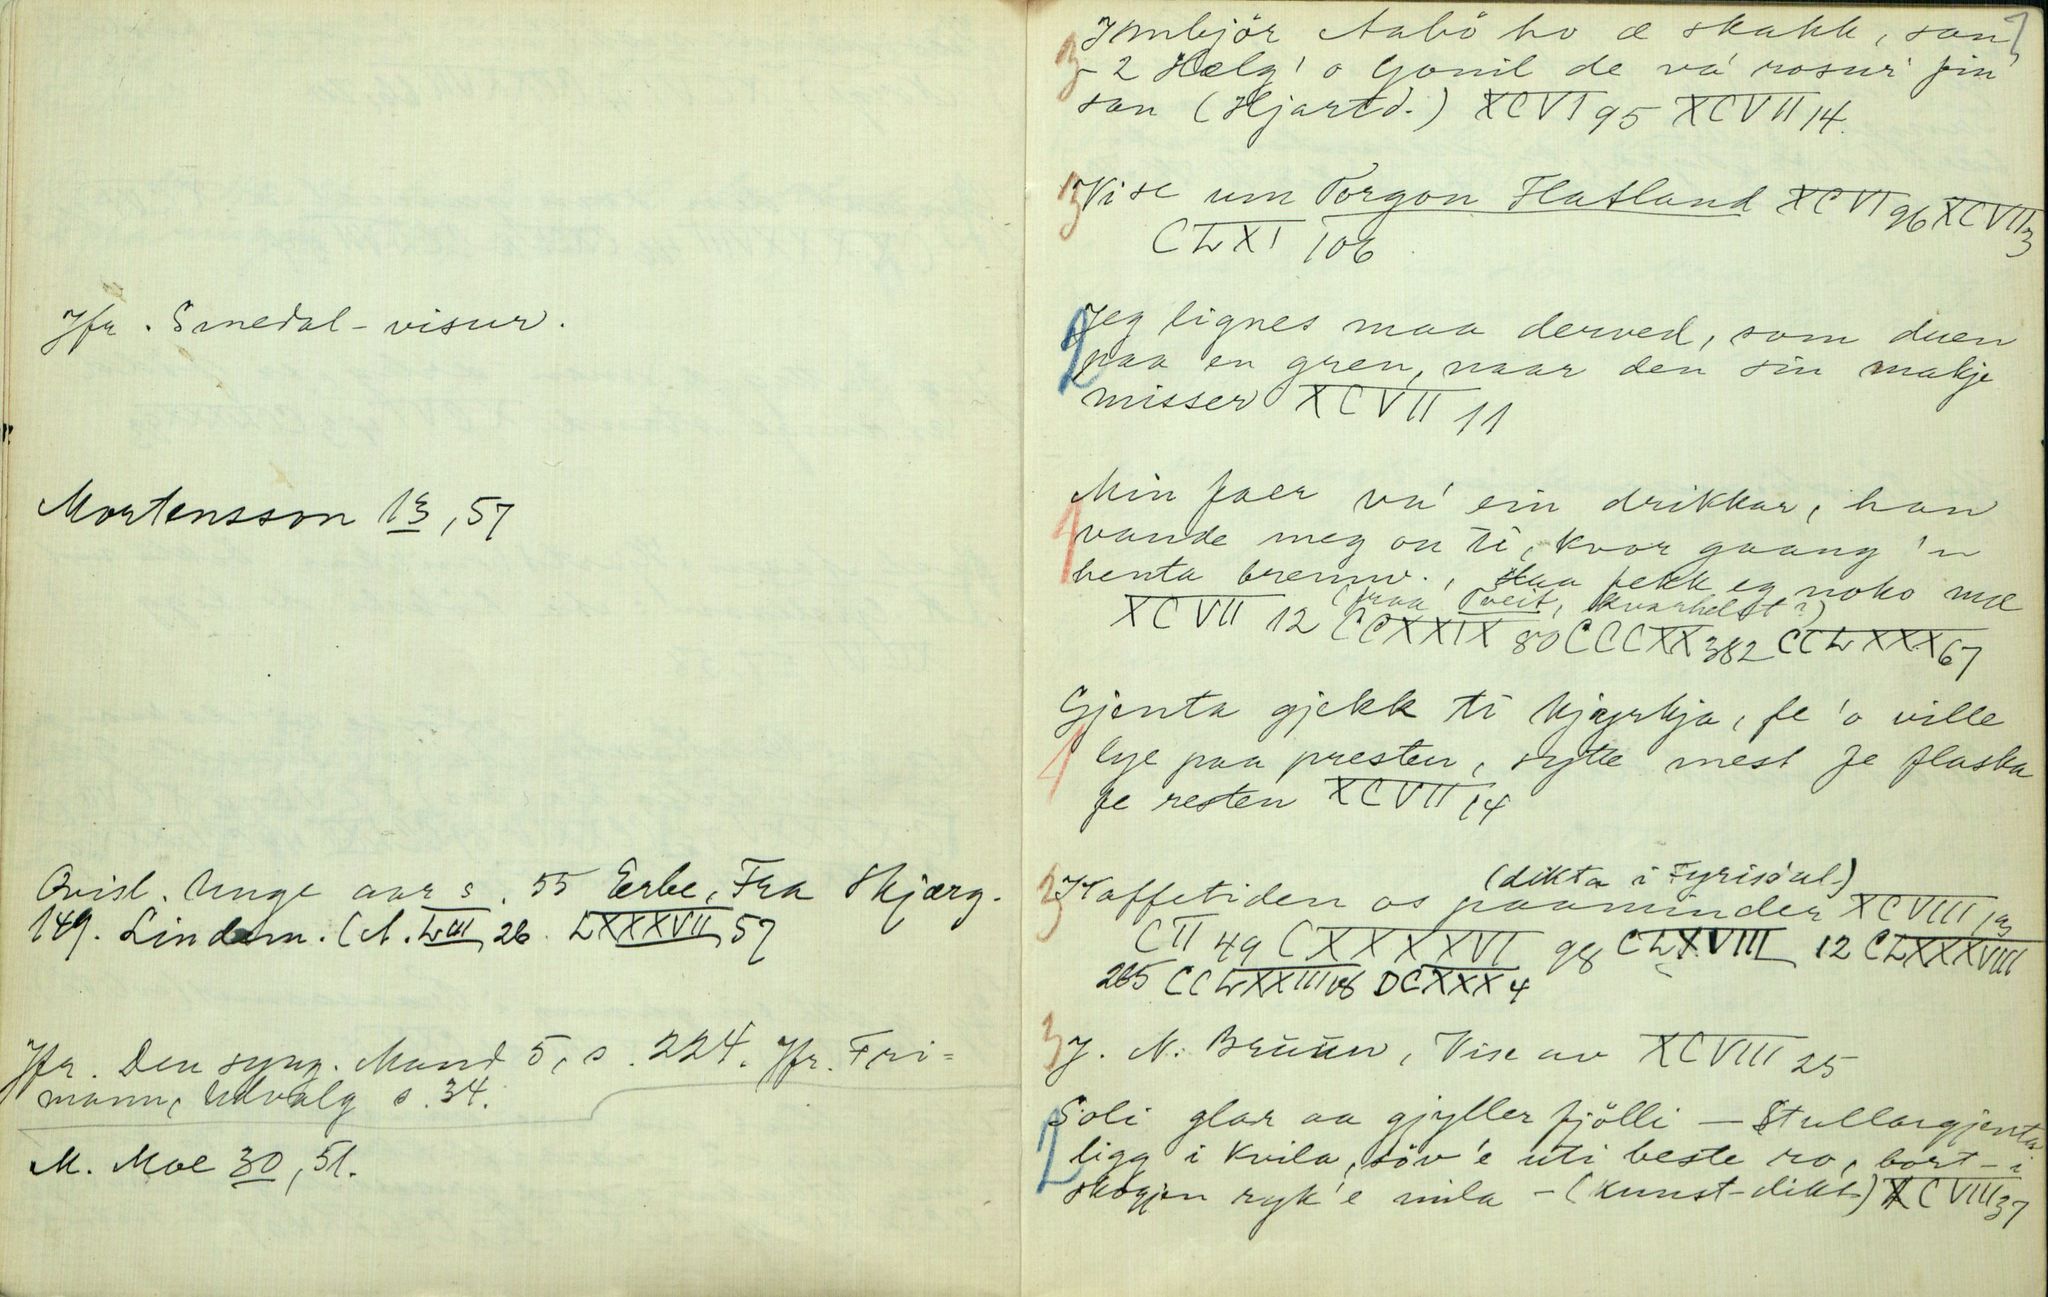 Jfr. Smedal-visur.
Mortensson 13, 57
Qvisl. Unge aar s. 55 Erbe, Fra Skjærg.
149. Lindem. (A. LIII, 26. LXXXVII, 57
Jfr. Den syng. Mand 5, s. 224. Jfr. Fri=
mann, Udvalg s. 34.
M. Moe 30, 51.
7
3 Imbjör Aabö ho æ skakk, san
- 2 Hælg' o Gonil de va' rosur fin'
san (Hjartd.) XCVI 95 XCVII 14.
3 Vise um Torgon Flatland XCVI 96 XCVII 3
CLXI 106
2 Jeg lignes maa derved, som duen
paa en gren, naar den sin makje
misser XCVII 11
1 Min faer va' ein drikkar, han
vande meg on ti, kvor gaang 'n
henta brennv., skaa fekk eg noko mæ
(fraa Tveit, Kvarhelst?)
XCVII 12 CCXXIX 80 CCCXX 382 CCLXXX 67
Gjenta gjekk ti kjyrkja, fe 'o ville
1 lye paa presten, sytte mest fe flaska
fe resten XCVII 14
(dikta i Fyrisdal)
3 Kaffetiden os paaminder XCVIII 13
CII 49 CXXXXVI 98 CLXVIII 12 CLXXXVIII
265 CCLXXIII 18 DCXXX 4
3 J. N. Bruun, Vise av XCVIII 25
Soli glar aa gjyller fjölli - Stullargjenta
2 ligg i kvila, söv 'e uti beste ro, bort - i
skogjen ryk 'e mila - (kunst-dikt) XCVIII 37